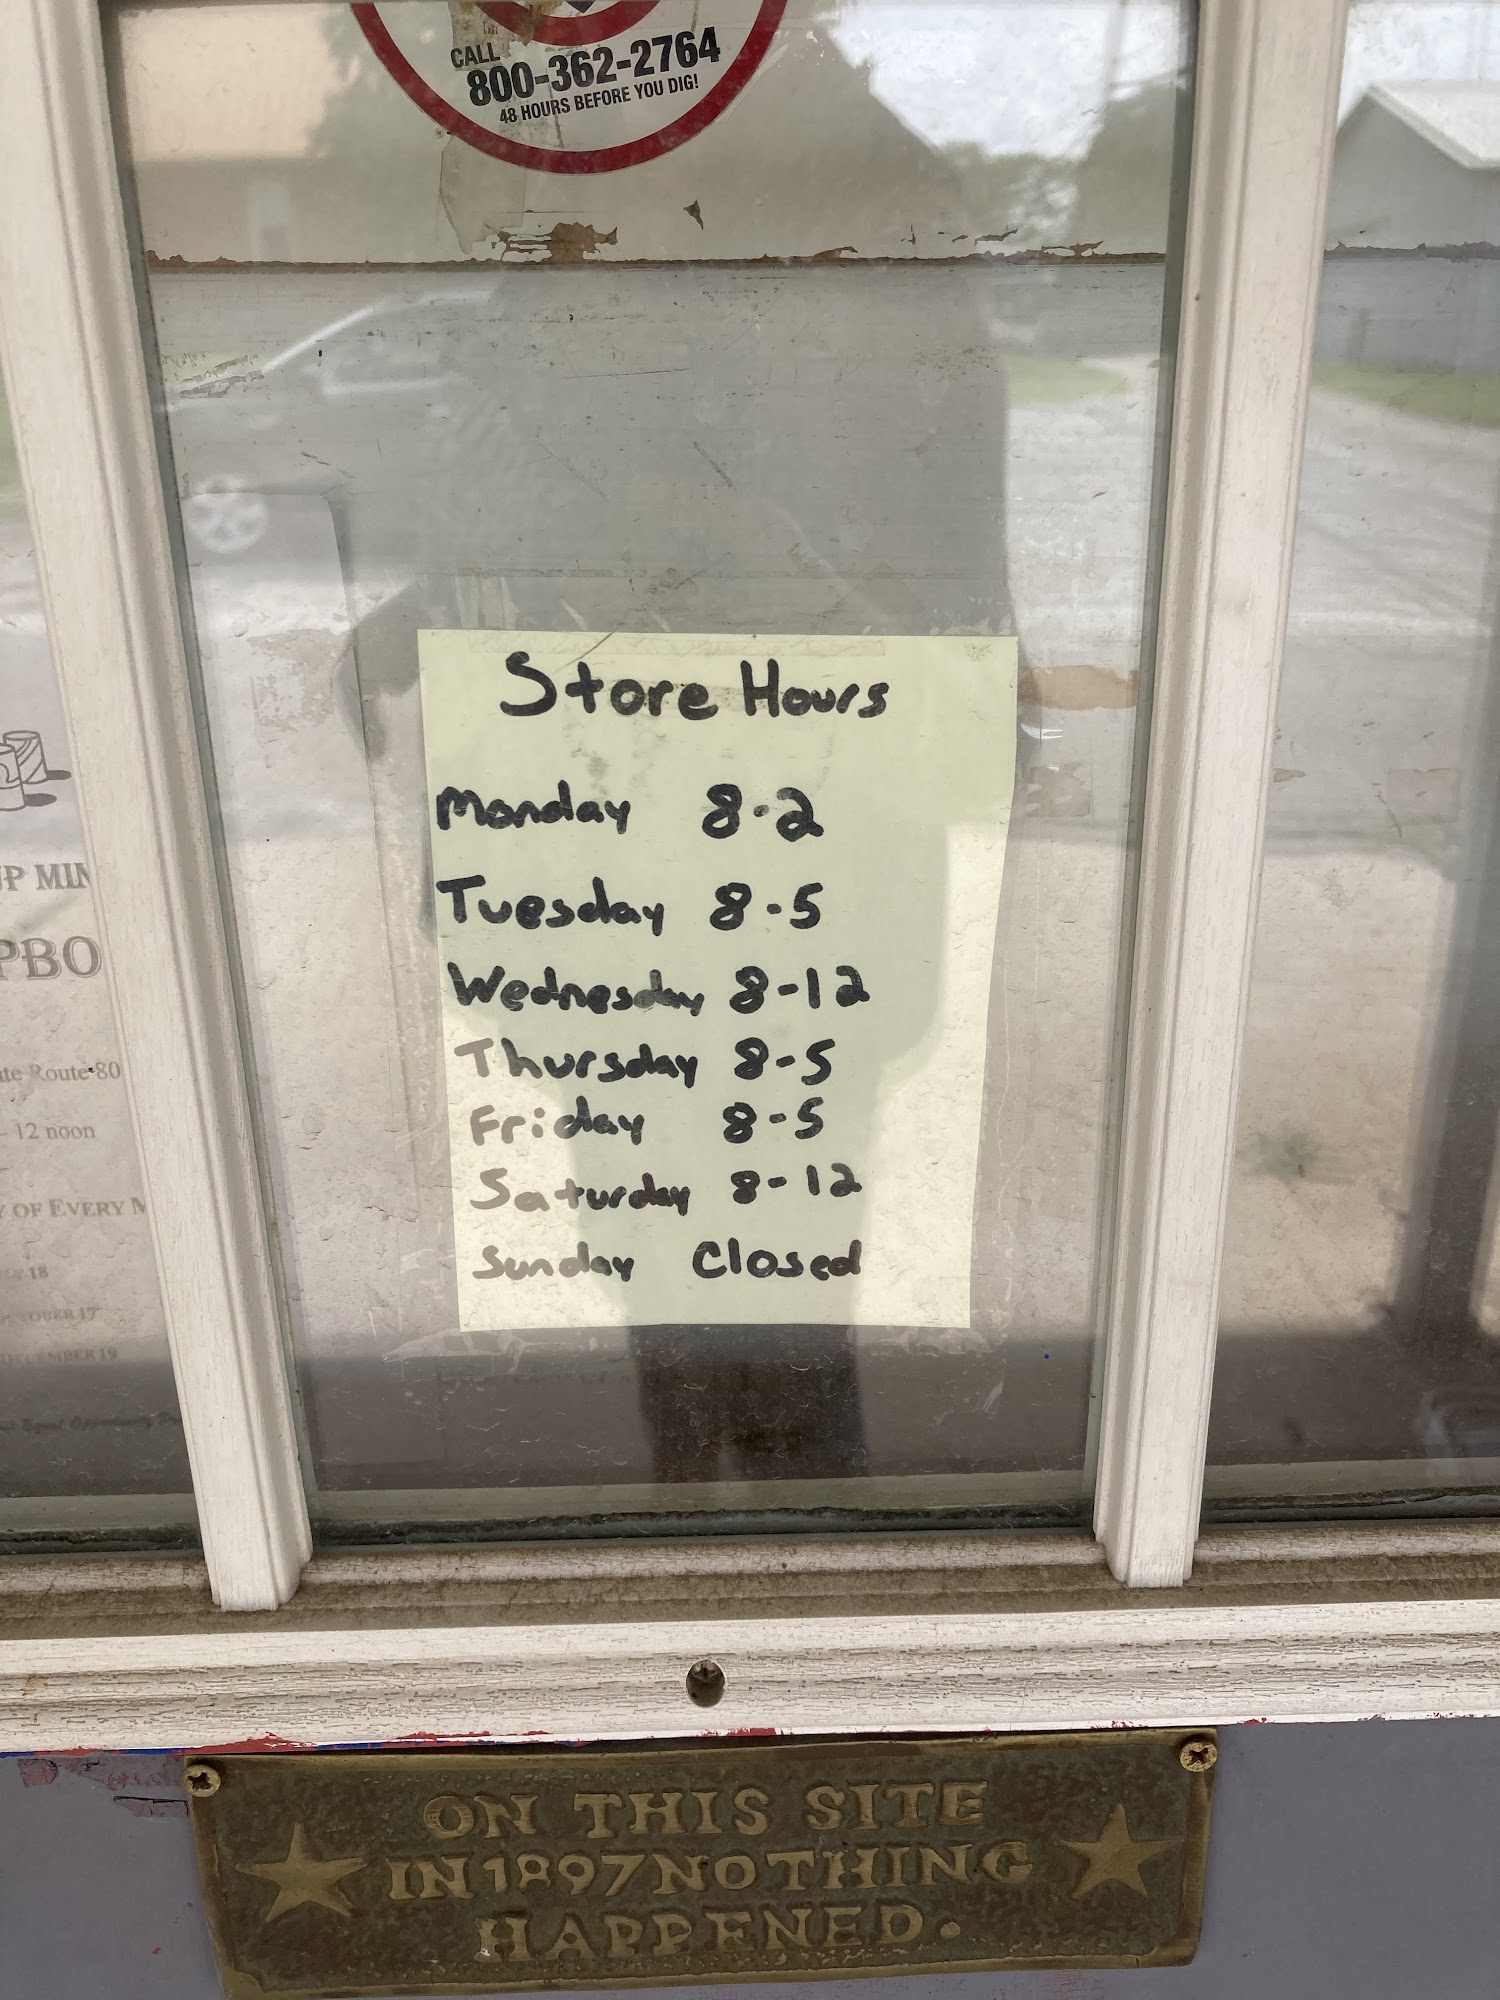 CALL
800-362-2764
48 HOURS BEFORE YOU DIG!
Store Hours
Monday 8-2
Tuesday 8-5
Wednesday 8-12
Thursday 8-5
Friday 8-5
Saturday 8-12
Sunday Closed
Route 80
- 12 noon
OF EVERY
18
17
19
ON THIS SITE
IN 1897 NOTHING
HAPPENED.